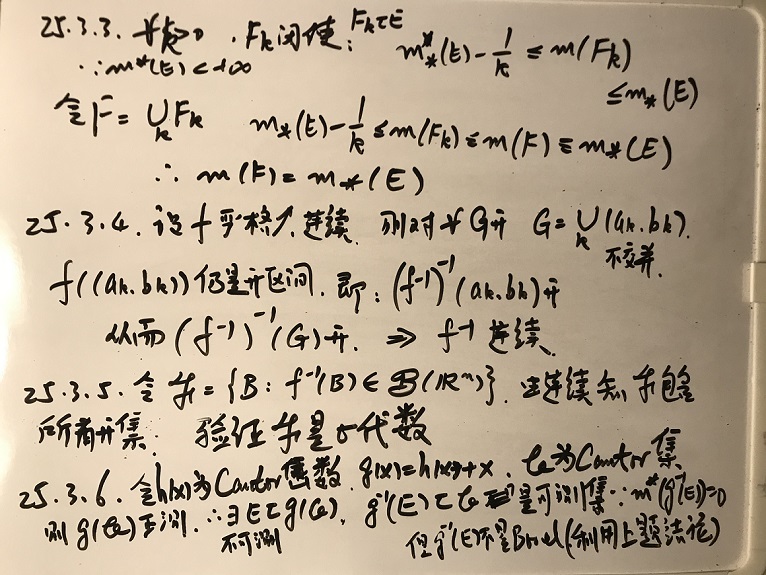 25.3.3. ∀k>0. Fk闭使: Fk⊂E m*(E) - 1/k ≤ m(Fk)
∵ m*(E) < +∞ ≤ m*(E)
令F = ∪k Fk m*(E) - 1/k ≤ m(Fk) ≤ m(F) ≤ m*(E)
∴ m(F) = m*(E)
25.3.4. 设f严格↗连续. 则对∀G开 G = ∪k (ak, bk).
不交并.
f((ak, bk))仍是开区间. 即: (f⁻¹)⁻¹(ak, bk)开
从而(f⁻¹)⁻¹(G)开. ⇒ f⁻¹连续.
25.3.5. 令 = {B: f⁻¹(B) ∈ B(ℝⁿ)}. 由连续知 包含
所有开集. 验证 是σ代数
25.3.6. 令h(x)为Cantor函数. g(x)=h(x)+x. 为Cantor集
则g( )正测. ∴∃E⊂g( ), g⁻¹(E)⊂ 是可测集∵m*(g⁻¹(E))=0
不可测 但g⁻¹(E)不是Borel(利用上题结论)